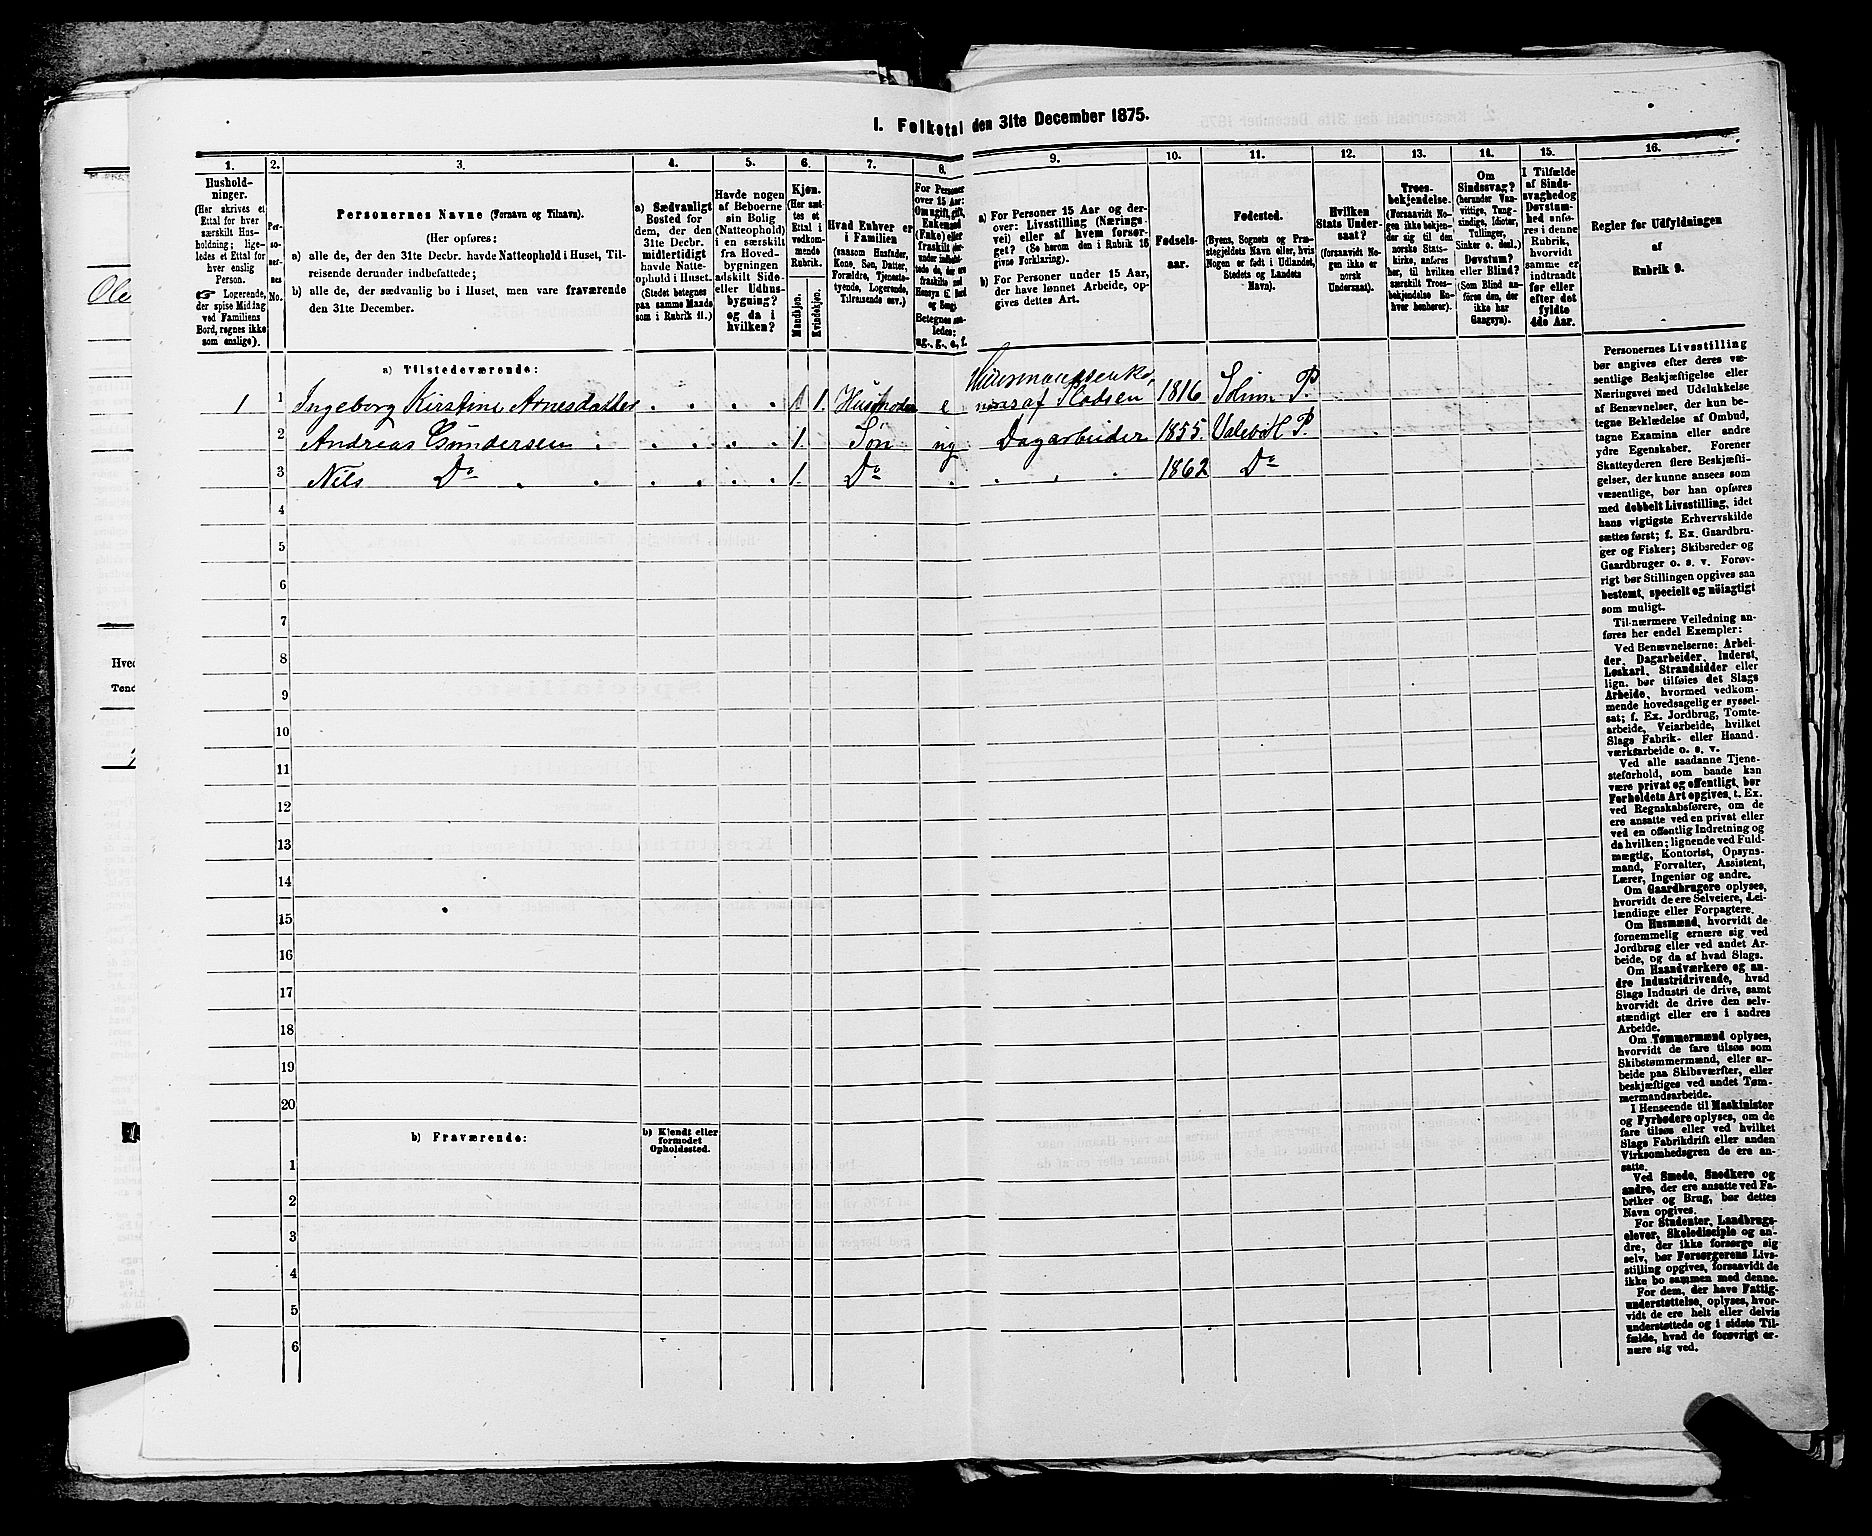 I. Folketal den 31te December 1875.
1. 2. 3. 4. 5. 6. 7. 8. 9. 10. 11. 12. 13. 14. 15. 16.
Hushold-
ninger.
(Her skrives et
Ettal for hver
særskilt Hus-
holdning; lige-
ledes et Ettal for
hver enslig
Person.
☞ Logerende,
der spise Middag
ved Familiens
Bord, regnes ikke
som enslige).
Per-
so-
ner-
nes
No.
Personernes Navne (Fornavn og Tilnavn).
(Her opføres:
a) alle de, der den 31te Decbr. havde Natteophold i Huset, Til-
reisende derunder indbefattede;
b) alle de, der sædvanlig bo i Huset, men vare fraværende
den 31te December.
a) Sædvanligt
Bosted for
dem, der den
31te Decbr.
midlertidigt
havde Natte-
ophold i Huset.
(Stedet betegnes
paa samme Maade
som i Rubrik 11.)
Havde nogen
af Beboerne
sin Bolig
(Natteophold)
i en særskilt
fra Hoved-
bygningen
adskilt Side-
eller Udhus-
bygning?
og da i
hvilken?
Kjøn.
(Her sæt-
tes et
Ettal i
vedkom-
mende
Rubrik.
Mandkjøn.
Kvindekjøn.
Hvad Enhver er
i Familien
(saasom Husfader,
Kone, Søn, Datter,
Forældre, Tjeneste-
tyende, Logerende,
Tilreisende osv.)
For Personer
over 15 Aar:
Om ugift, gift,
Enkemand
(Enke) eller
fraskilt
Betegnes saa-
ledes:
ug., g., e., f.
a) For Personer 15 Aar og der-
over: Livsstilling (Nærings-
vei) eller af hvem forsør-
get? (Se herom den i Rubrik 16
givne Forklaring).
b) For Personer under 15 Aar,
der have lønnet Arbeide, op-
gives dettes Art.
Fødsels-
aar.
Fødested.
(Byens, Sognets og Præ-
stegjeldets Navn eller, hvis
Nogen er født i Udlandet,
Stedets og Landets
Navn).
Hvilken
Stats Under-
saat?
(forsaavidt No-
gen ikke er
norsk
Undersaat).
Troes-
bekjendelse.
(Forsaavidt No-
gen ikke bekjen-
der sig til den
norske Stats-
kirke, anføres
her, til hvilken
særskilt Troes-
bekjendelse En-
hver henhører).
Om
Sindssvag?
(herunder Van-
vittige, Tung-
sindige, Idioter,
Tullinger,
Sinker o. desl.)
Døvstum?
eller Blind?
(Som Blind an-
føres den, der
ikke har
Gangsyn).
I Tilfælde
af Sinds-
svaghed og
Døvstum-
hed anfø-
res i denne
Rubrik,
hvorvidt
samme er
indtraadt
før eller
efter det
fyldte
4de Aar.
Regler for Udfyldningen
af
Rubrik 9.
a) Tilstedeværende:
1 1 Ingeborg Kirstine Arnesdatter 1. Husmoder e 1816 Solum P.
2 Andreas Gundersen 1. Søn ug Dagarbeider 1855. Valebø P.
3 Nils Do 1. Do 1862 Do
4
5
6
7
8
9
10
11
12
13
14
15
16
17
18
19
20
b) Fraværende:
b) Kjendt eller
formodet
Opholdssted.
1
2
3
4
5
6
Personernes Livsstilling
bør angives efter deres væ-
sentlige Beskjæftigelse eller
Næringsvei med Udelukkelse
af Benævnelser, der kun be-
tegne Beklædelse af Ombud,
tagne Examina eller andre
ydre Egenskaber. Forener
Skatteyderen flere Beskjæfti-
gelser, der kunne ansees som
væsentlige, bør han opføres
med dobbelt Livsstilling, idet
hans vigtigste Erhvervskilde
sættes først; f. Ex. Gaardbru-
ger og Fisker; Skibsreder og
Gaardbruger o. s. v. Forøv-
rigt bør Stillingen opgives saa
bestemt, specielt og nöiagtigt
som muligt.
Til nærmere Veiledning an-
føres her endel Exempler:
Ved Benævnelserne: Arbei-
der, Dagarbeider, Inderst,
Løskarl, Strandsidder eller
lign. bør tilføies det Slags
Arbeide, hvormed vedkom-
mende hovedsagelig er syssel-
sat; f. Ex. Jordbrug, Tomte-
arbeide, Veiarbeide, hvilket
Slags Fabrik- eller Haand-
værksarbeide o. s. v.
Ved alle saadanne Tjene-
steforhold, som baade kan
være privat og offentligt, bør
Forholdets Art opgives, t. Ex.
ved Regnskabsførere, om de
ere ansatte ved en privat eller
ved en offentlig Indretning og
da hvilken; lignende ved Fuld-
mægtig, Kontorist, Opsyns-
mand, Forvalter, Assistent,
Lærer, Ingeniør og andre.
Om Gaardbrugere oplyses,
hvorvidt de ere Selveiere, Lei-
lændinge eller Forpagtere.
Om Husmænd, hvorvidt de
fornemmelig ernære sig ved
Jordbrug eller ved andet Ar-
beide, og da af hvad Slags.
Om Haandværkere og an-
dre Industridrivende, hvad
Slags Industri de drive, samt
hvorvidt de drive den selv-
stændigt eller ere i andres
Arbeide.
Om Tømmermænd oplyses,
hvorvidt de fare tilsøs som
Skibstømmermænd, eller ar-
beide paa Skibsværfter, eller
beskjæftiges ved andet Tøm-
mermandsarbeide.
I Henseende til Maskinister
og Fyrbødere oplyses, om de
fare tilsøs eller ved hvilket
Slags Fabrikdrift eller anden
Virksomhedsgren de ere an-
satte.
Ved Smede, Snedkere og
andre, der ere ansatte ved Fa-
briker og Brug, bør dettes
Navn opgives.
For Studenter, Landbrugs-
elever, Skoledisciple og an-
dre, der ikke forsørge sig
selv, bør Forsørgerens Livs-
stilling opgives, forsaavidt de
ikke bo sammen med denne.
For dem, der have Fattig-
understøttelse, oplyses, hvor-
vidt de ere helt eller delvis
understøttede og i sidste Til-
fælde, hvad de forøvrigt er-
nære sig ved.